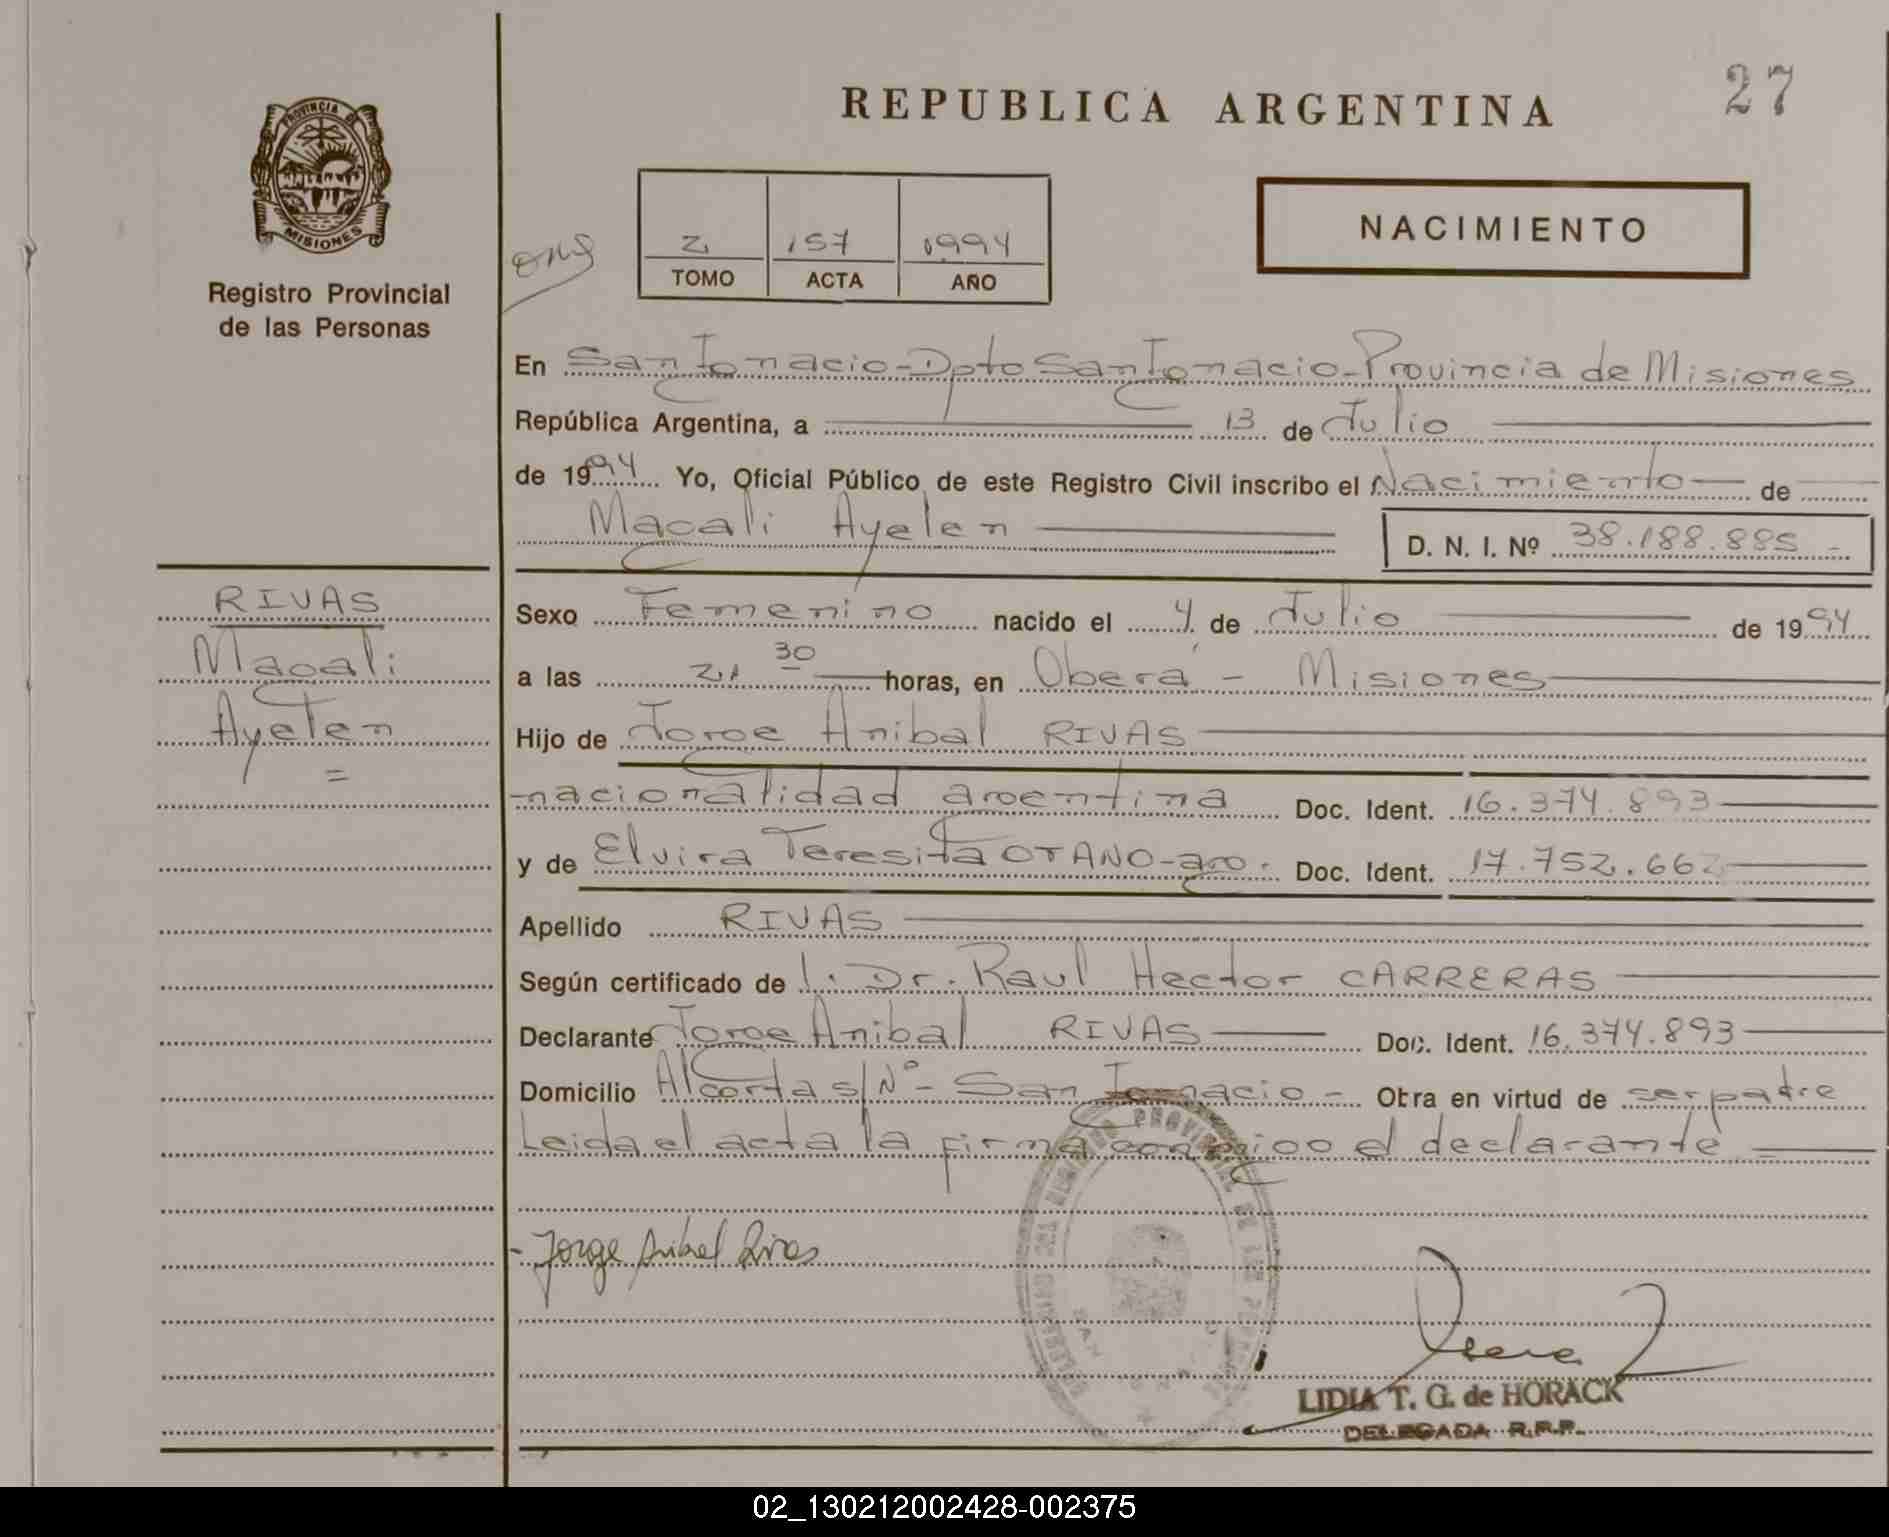 27
REPUBLICA ARGENTINA
PROVINCIA DE
MISIONES
Registro Provincial
de las Personas
2 157 1994
TOMO ACTA AÑO
NACIMIENTO
En San Ignacio-Dpto San Ignacio-Provincia de Misiones
República Argentina, a 13 de Julio
de 1994 Yo, Oficial Público de este Registro Civil inscribo el Nacimiento de
Magali Ayelen D. N. I. Nº 38.188.885
RIVAS
Magali
Ayelen
Sexo Femenino nacido el 4 de Julio de 1994
a las 21 30 horas, en Oberá - Misiones
Hijo de Jorge Anibal RIVAS
nacionalidad argentina Doc. Ident. 16.374.893
y de Elvira Teresita OTAÑO-arg. Doc. Ident. 17.752.662
Apellido RIVAS
Según certificado de l. Dr. Raul Hector CARRERAS
Declarante Jorge Anibal RIVAS Doc. Ident. 16.374.893
Domicilio Alcorta s/Nº- San Ignacio - Obra en virtud de ser padre
Leida el acta la firma conmigo el declarante
Jorge Anibal Rivas
LIDIA T. G. de HORACK
DELEGADA R.P.P.
02_130212002428-002375